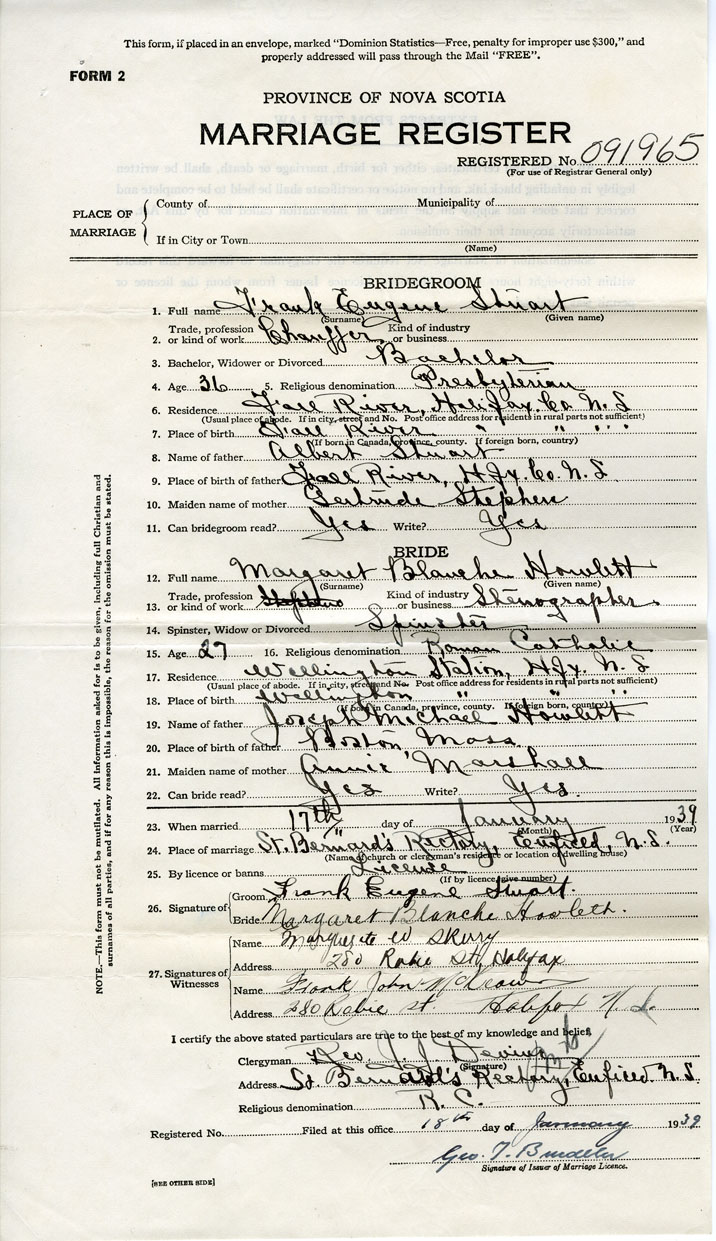 This form, if placed in an envelope, marked “Dominion Statistics—Free, penalty for improper use $300,” and
properly addressed will pass through the Mail “FREE”.
FORM 2
PROVINCE OF NOVA SCOTIA
MARRIAGE REGISTER
REGISTERED No. 091965
(For use of Registrar General only)
PLACE OF MARRIAGE
County of Municipality of
If in City or Town
(Name)
BRIDEGROOM
1. Full name Frank Eugene Stuart
(Surname) (Given name)
2. Trade, profession or kind of work Chauffer Kind of industry or business
3. Bachelor, Widower or Divorced Bachelor
4. Age 36 5. Religious denomination Presbyterian
6. Residence Fall River, Halifax. Co N. S
(Usual place of abode. If in city, street and No. Post office address for residents in rural parts not sufficient)
7. Place of birth Fall River " " " "
(If born in Canada, province, county. If foreign born, country)
8. Name of father Albert Stuart
9. Place of birth of father Fall River, Hfx. Co. N. S
10. Maiden name of mother Gertrude Stephen
11. Can bridegroom read? Yes Write? Yes
BRIDE
12. Full name Margaret Blanche Howlett
(Surname) (Given name)
13. Trade, profession or kind of work Kind of industry or business Stenographer
14. Spinster, Widow or Divorced Spinster
15. Age 27 16. Religious denomination Roman Catholic
17. Residence Wellington Station, Hfx. N. S
(Usual place of abode. If in city, street and No. Post office address for residents in rural parts not sufficient)
18. Place of birth Wellington " " "
(If born in Canada, province, county. If foreign born, country)
19. Name of father Joseph Michael Howlett
20. Place of birth of father Boston Mass.
21. Maiden name of mother Annie Marshall
22. Can bride read? Yes Write? Yes.
23. When married 17th day of January 1939
(Month) (Year)
24. Place of marriage St. Bernard's Rectory, Enfield, N. S.
(Name of church or clergyman's residence or location of dwelling house)
25. By licence or banns License
(If by licence, give number)
26. Signature of
Groom Frank Eugene Stuart.
Bride Margaret Blanche Howlett.
27. Signatures of Witnesses
Name Marguerite W
Address 280 Robie St, Halifax
Name Frank John
Address 280 Robie st Halifax N. S.
I certify the above stated particulars are true to the best of my knowledge and belief,
Clergyman Rev. J. J. Devine
(Signature)
Address St. Bernard's Rectory, Enfield. N. S.
Religious denomination R. C.
Registered No. Filed at this office 18th day of January 1939
Geo. T.
Signature of Issuer of Marriage Licence.
[SEE OTHER SIDE]
NOTE.—This form must not be mutilated. All Information asked for is to be given, including full Christian and
surnames of all parties, and if for any reason this is impossible, the reason for the omission must be stated.